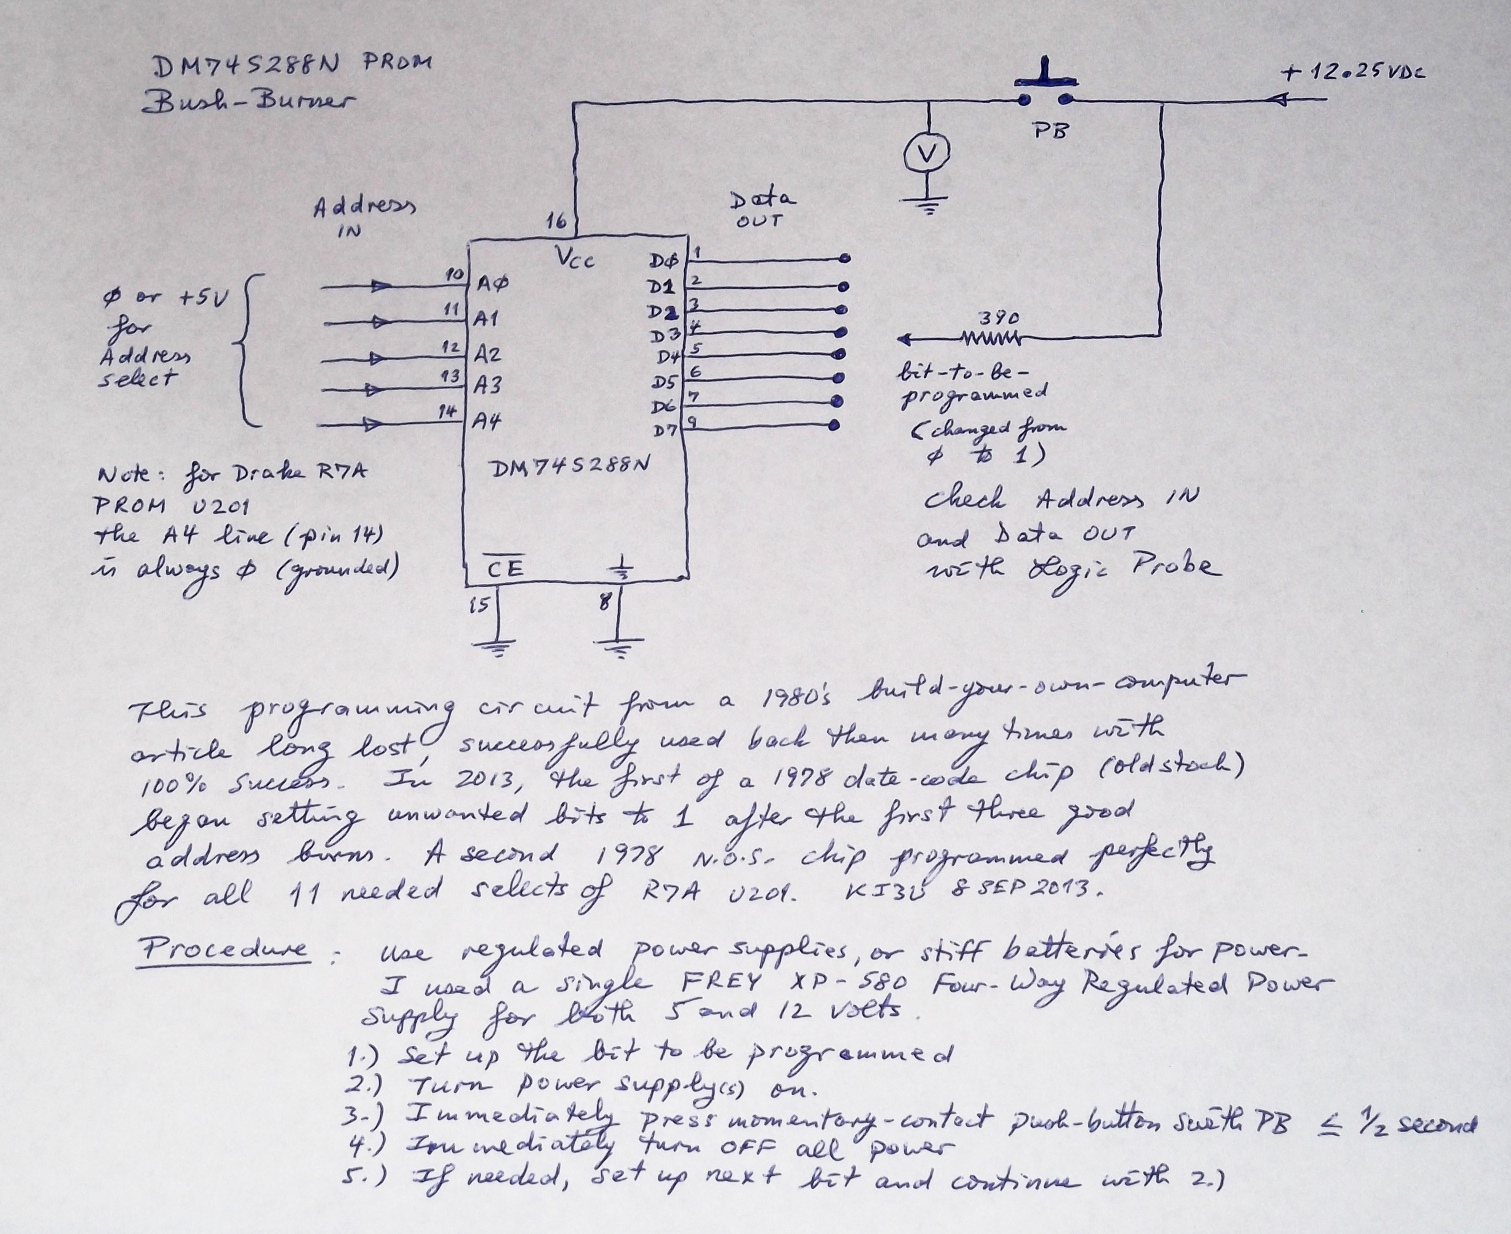 DM74S288N PROM
Bush-Burner
+12.25 VDC
PB
V
Address
IN
Data
OUT
16
Vcc
10 AØ
11 A1
12 A2
13 A3
14 A4
DØ 1
D1 2
D2 3
D3 4
D4 5
D5 6
D6 7
D7 9
Ø or +5V
for
Address
select
390
bit-to-be-
programmed
(changed from
Ø to 1)
DM74S288N
Note: for Drake R7A
PROM U201
the A4 line (pin 14)
is always Ø (grounded)
check Address IN
and Data OUT
with Logic Probe
CE
15
8
This programming circuit from a 1980's build-your-own-computer
article long lost, successfully used back then many times with
100% success. In 2013, the first of a 1978 date-code chip (old stock)
began setting unwanted bits to 1 after the first three good
address burns. A second 1978 N.O.S. chip programmed perfectly
for all 11 needed selects of R7A U201. KI3U 8 SEP 2013.
Procedure: use regulated power supplies, or stiff batteries for power.
I used a single FREY XP-580 Four-Way Regulated Power
Supply for both 5 and 12 volts.
1.) Set up the bit to be programmed
2.) Turn power supply(s) on.
3.) Immediately press momentary-contact push-button switch PB ≤ 1/2 second
4.) Immediately turn OFF all power
5.) If needed, set up next bit and continue with 2.)